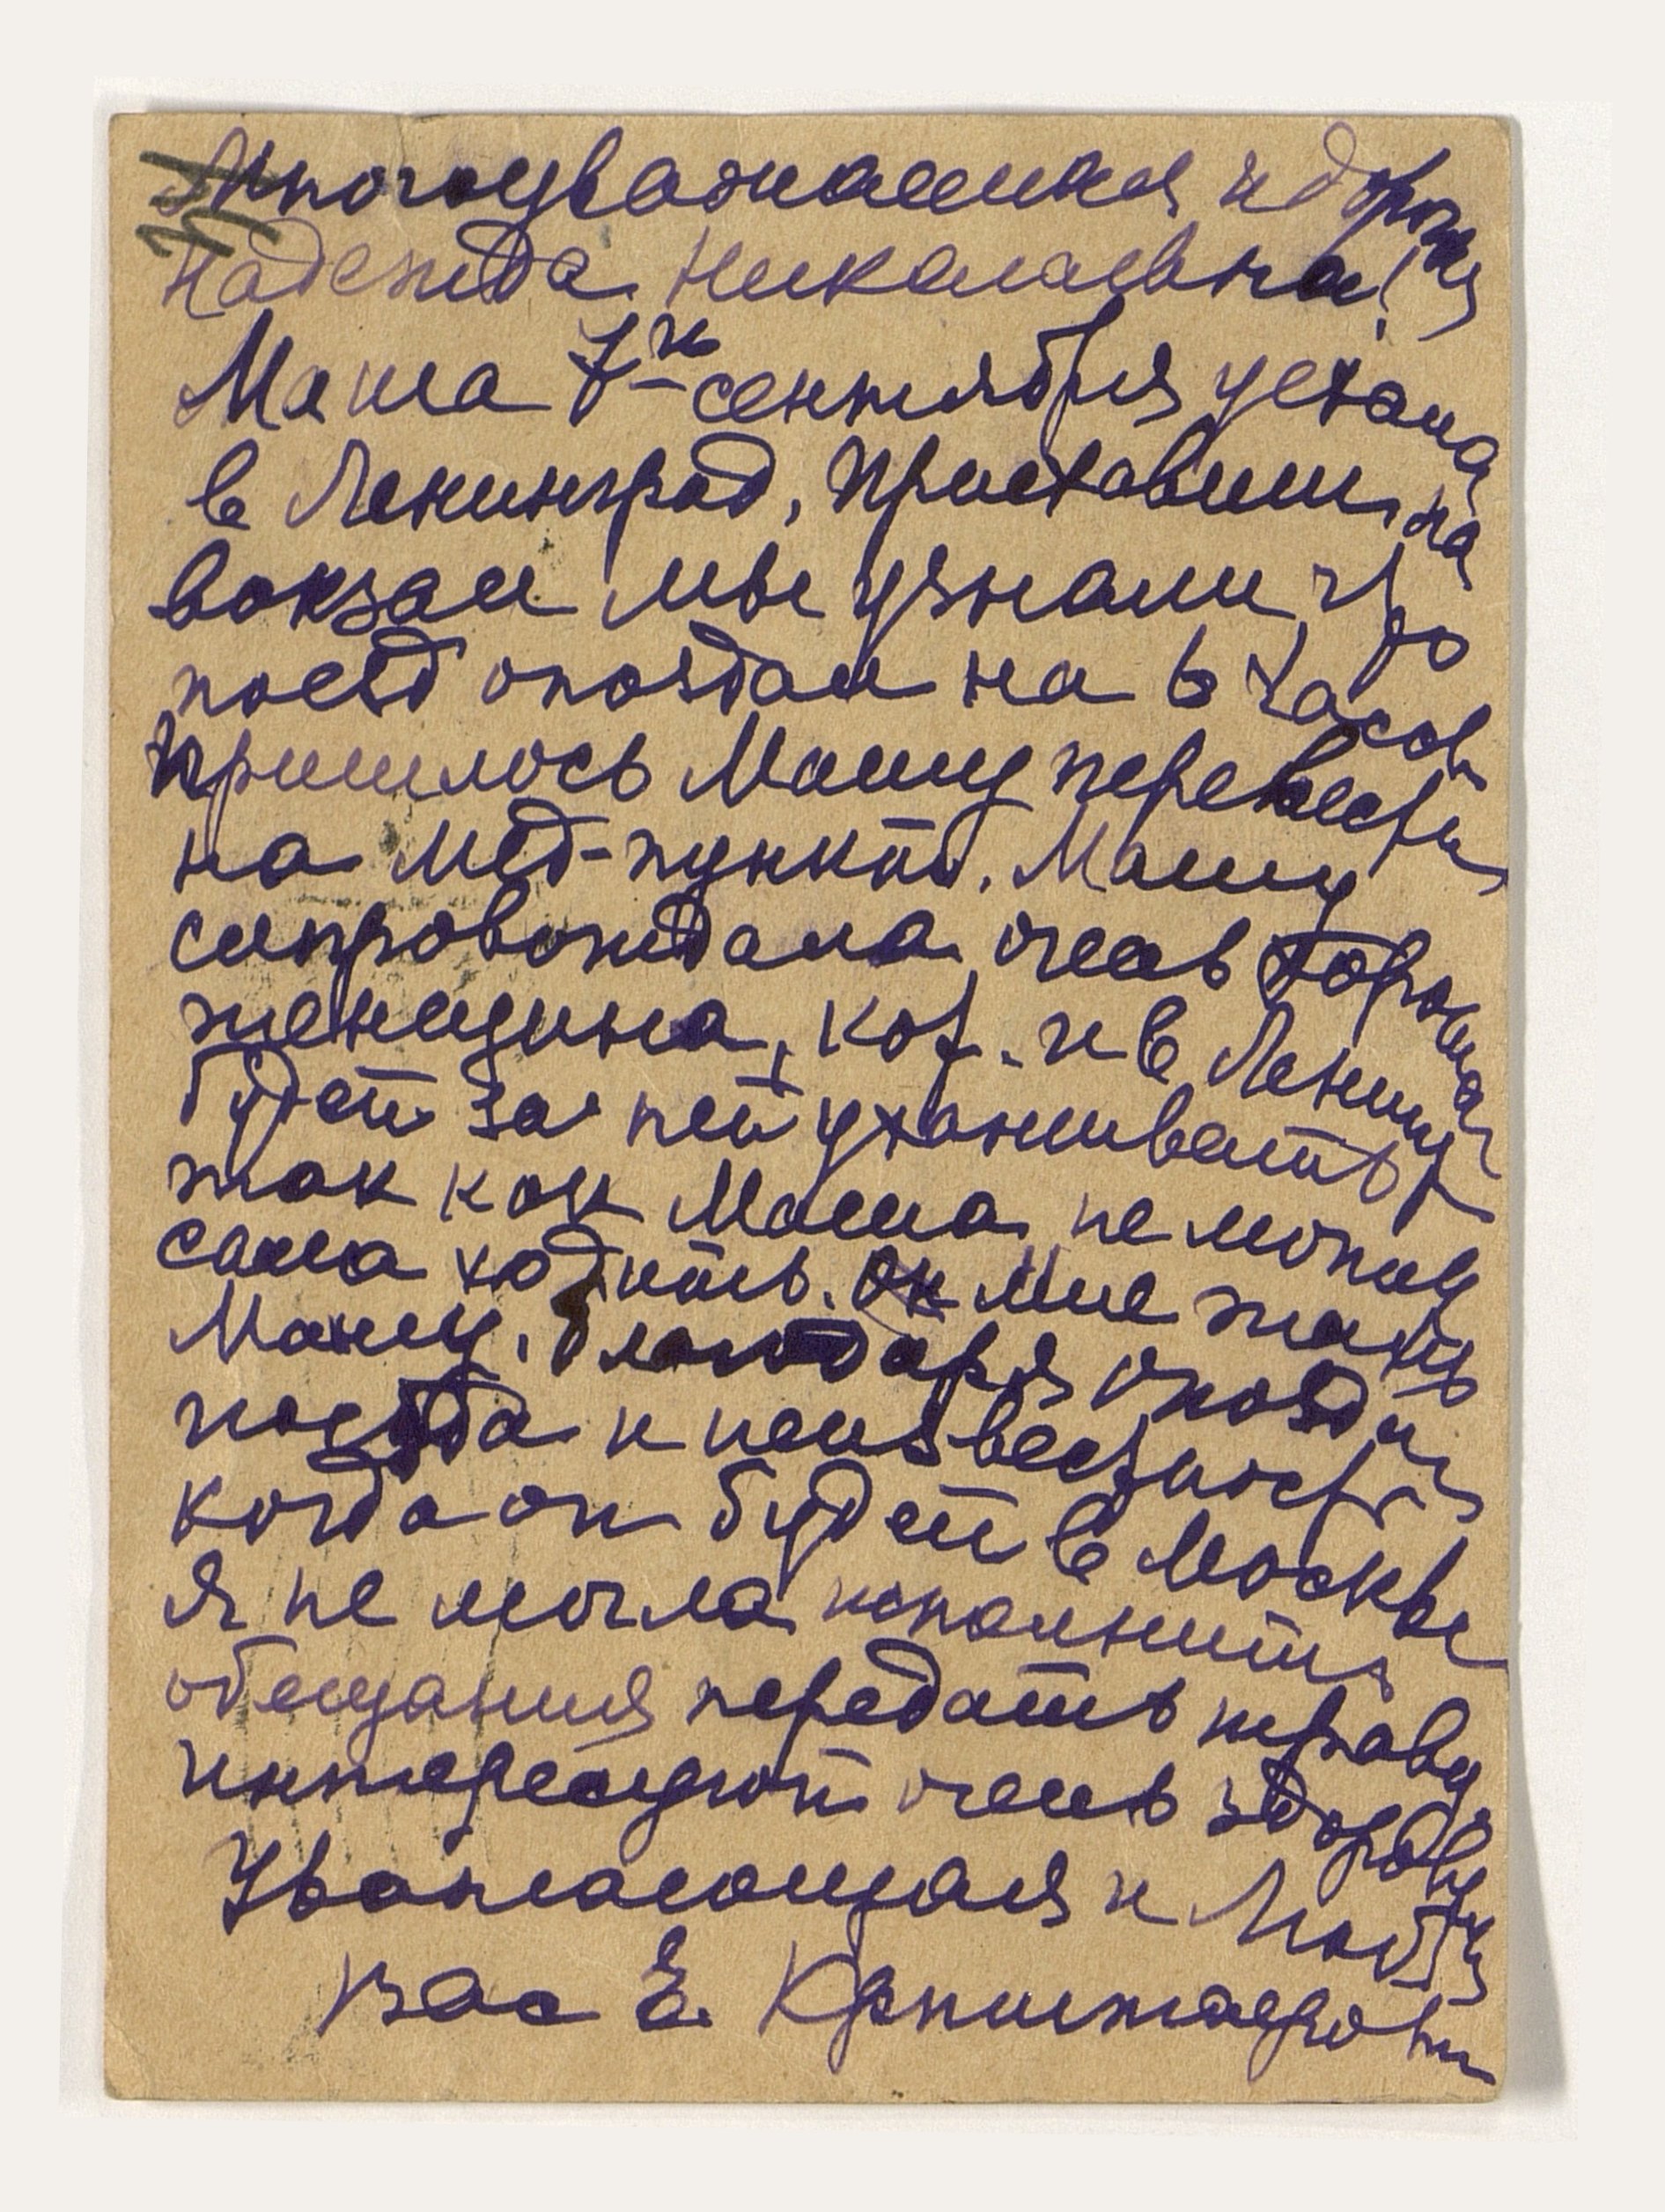 Многоуважаемая и дорогая
Надежда Николаевна!
Маша 7го сентября уехала
в Ленинград, приехавши на
вокзал мы узнали что
поезд опоздал на 6 часов
пришлось Машу перевести
на мед-пункт. Машу
сопровождала очень хорошая
женщина, кот. и в Ленингр
будет за ней ухаживать
так как Маша не может
сама ходить. Ох мне жаль
Машу. Благодаря опозда
поезда и неизвестности
когда он будет в Москве
я не могла исполнить
обещания передать траву
интересуют очень здоровы
Уважающая и любящ
вас Е.